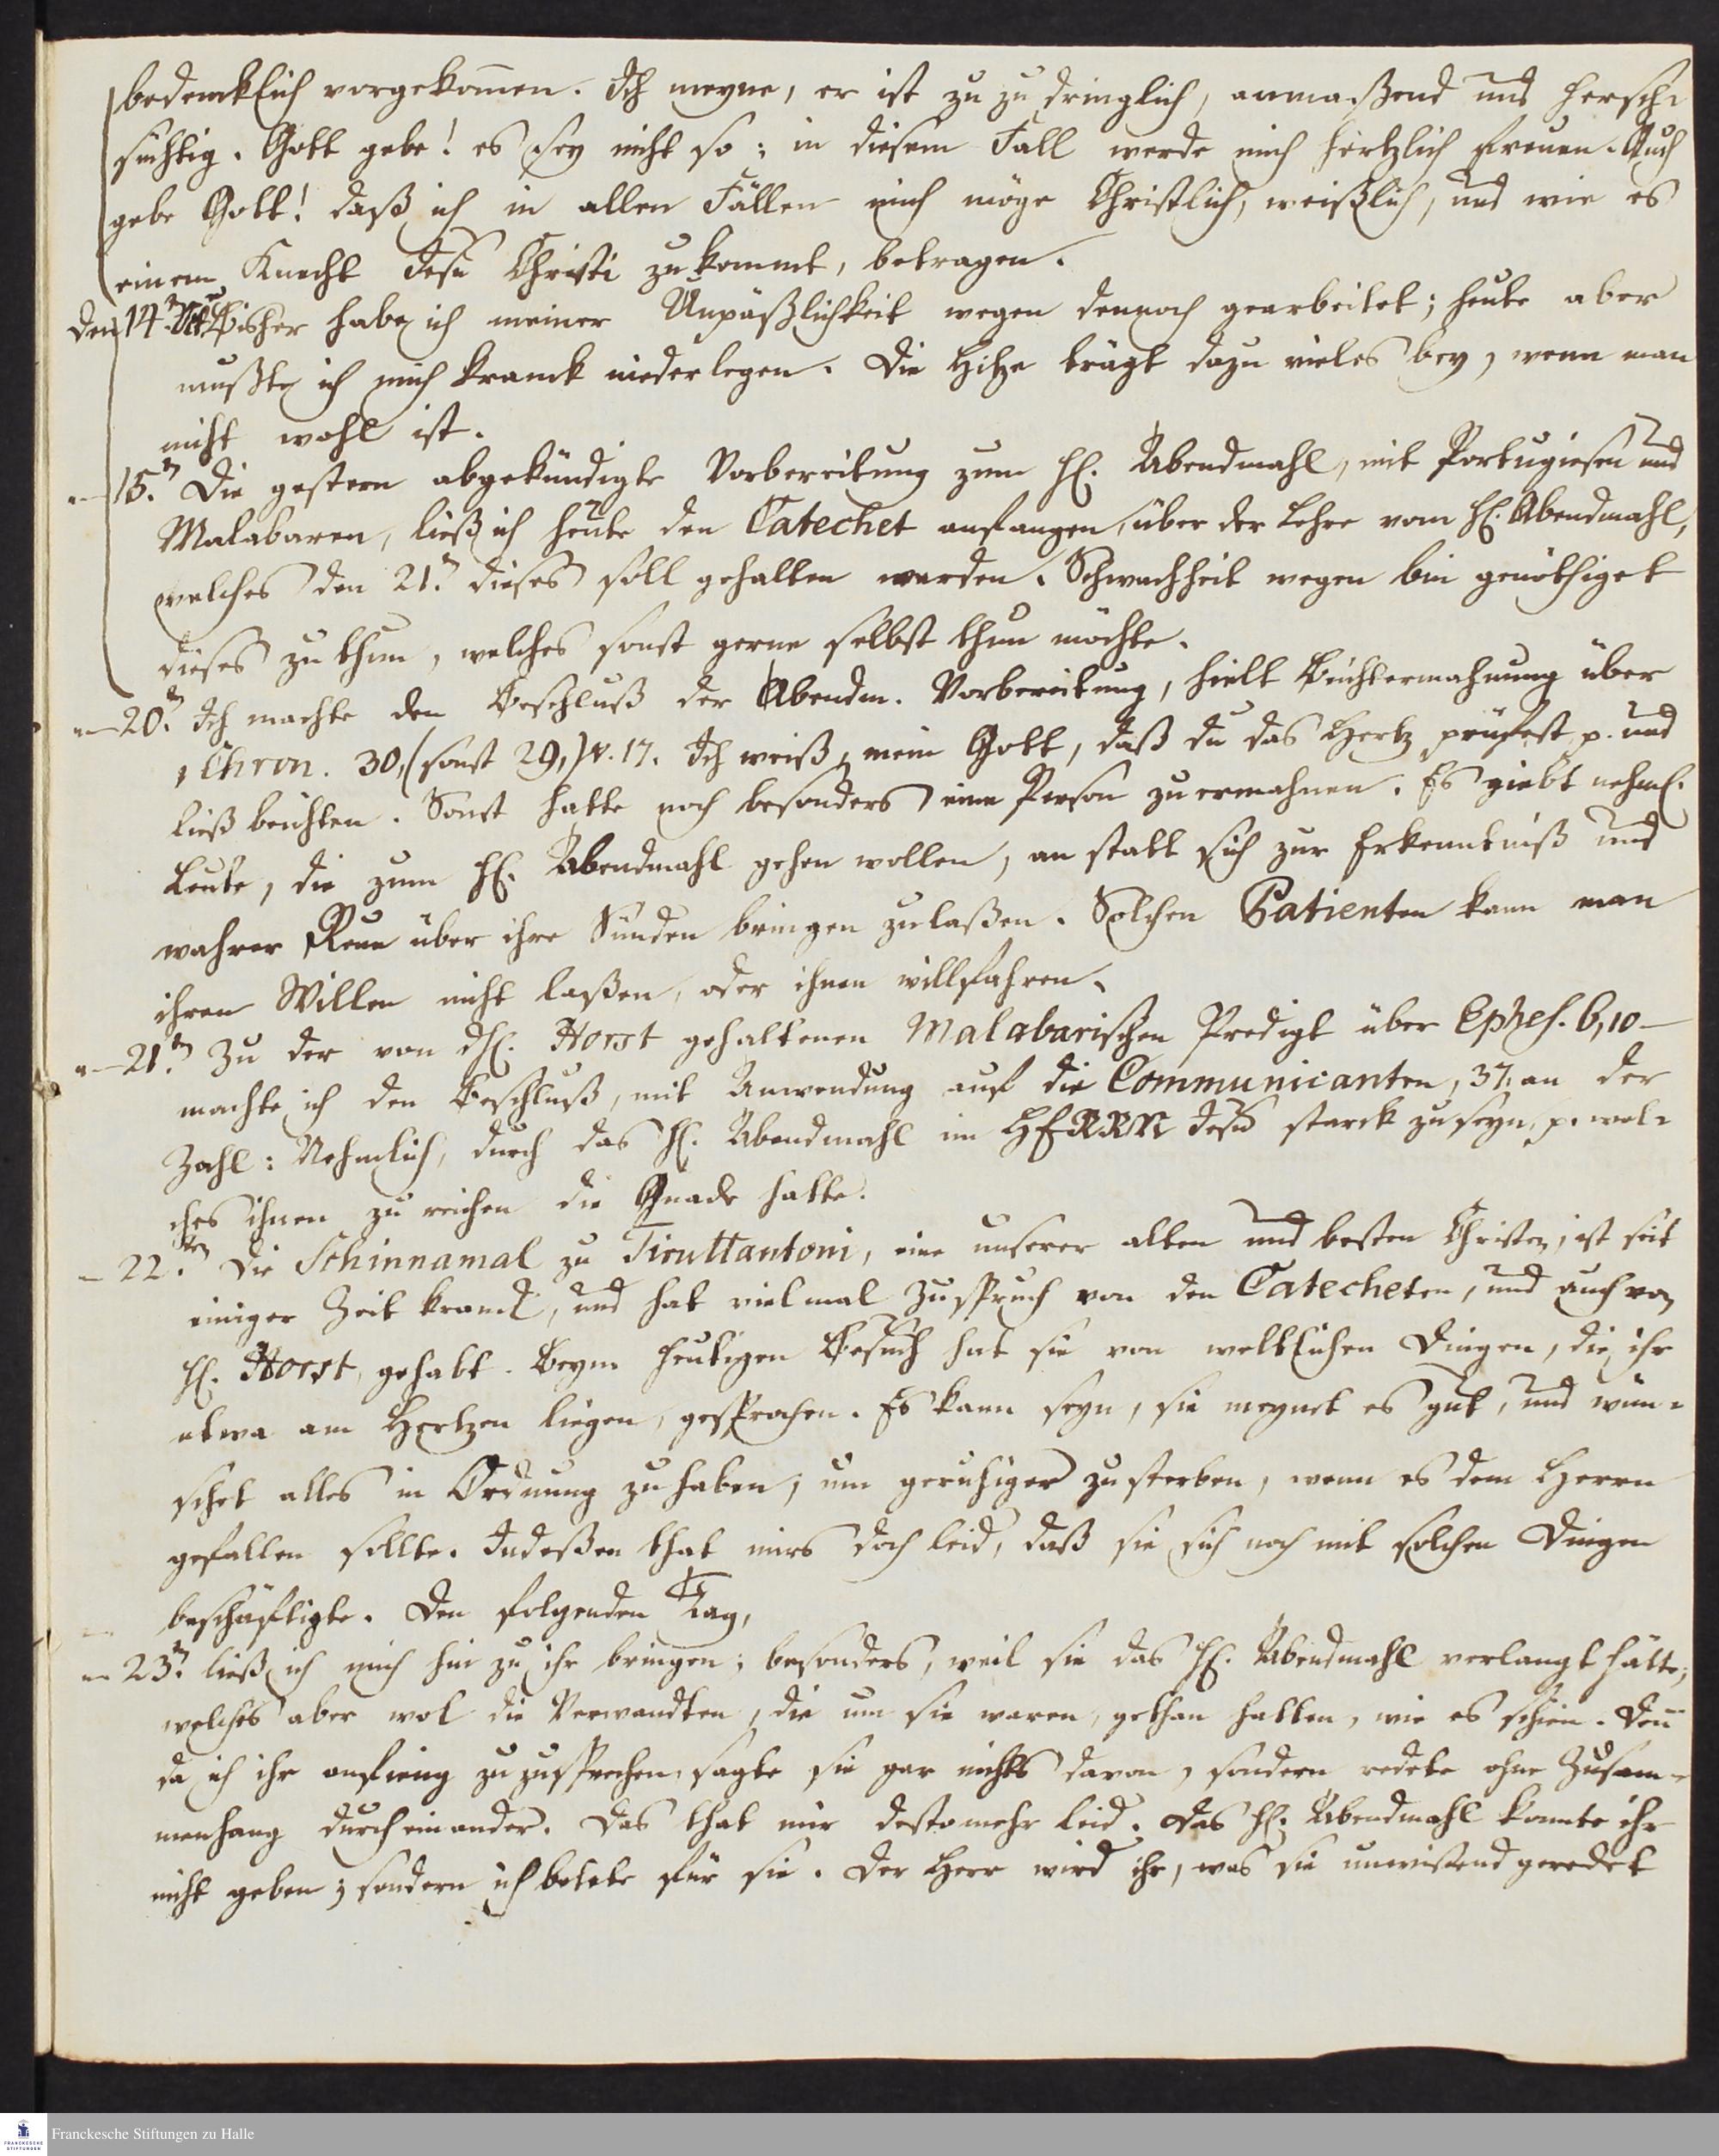 bedencklich vorgekom̄en. Ich meyne, er ist zu zu dringlich, anmaßend und hersch-
süchtig. Gott gebe! es sey nicht so; in diesem Fall werde mich hertzlich freuen. Auch
gebe Gott! daß ich in allen Fällen mich möge Christlich, weißlich, und wie es
einem Knecht Jesu Christi zukommt, betragen.
Den 14.n Bisher habe ich meiner Unpäßlichkeit wegen dennoch gearbeitet; heute aber
mußte ich mich kranck niederlegen. Die Hitze trägt dazu vieles bey, wenn man
nicht wohl ist.
"—15.n Die gestern abgekündigte Vorbereitung zum Hl. Abendmahl, mit Portugiesen und
Malabaren, ließ ich heute den Catechet anfangen, über der Lehre vom Hl. Abendmahl,
welches den 21.n dieses soll gehalten werden. Schwachheit wegen bin genöthiget
dieses zu thun, welches sonst gerne selbst thun möchte.
"—20.n Ich machte den Beschluß der Abendm. Vorbereitung, hielt Beichtermahnung über
1 Chron. 30, (sonst 29,) v. 17. Ich weiß, mein Gott, daß du das Hertz prüfest p. und
ließ beichten. Sonst hatte noch besonders eine Person zu ermahnen. Es giebt nehml.
Leute, die zum Hl. Abendmahl gehen wollen, an statt sich zur Erkenntniß und
wahrer Reue über ihre Sünden bringen zulaßen. Solchen Patienten kann man
ihren Willen nicht laßen, oder ihnen willfahren.
"—21.n Zu der von H. Horst gehaltenen Malabarischen Predigt über Ephes. 6, 10—
machte ich den Beschluß, mit Anwendung auf die Communicanten, 37. an der
Zahl: Nehmlich, durch das Hl. Abendmahl im HERRN Jesu starck zu seyn, p. wel-
ches ihnen zu reichen die Gnade hatte.
— 22.ten Die Schinnamal zu Tiruttantoni, eine unserer alten und besten Christen, ist seit
einiger Zeit kranck, und hat vielmal Zuspruch von den Catecheten, und auch von
H. Horst, gehabt. Beym heutigen Besuch hat sie von weltlichen Dingen, die ihr
etwa am Hertzen liegen, gesprochen. Es kann seyn, sie meynet es gut, und wün-
schet alles in Ordnung zu haben, um geruhiger zu sterben, wenn es dem Herrn
gefallen sollte. Indeßen that mirs doch leid, daß sie sich noch mit solchen Dingen
beschäftigte. Den folgenden Tag,
"— 23.n ließ ich mich hin zu ihr bringen; besonders, weil sie das Hl. Abendmahl verlangt hätte;
welches aber wol die Verwandten, die um sie waren, gethan hatten, wie es schien. Den̄
da ich ihr anfieng zuzusprechen, sagte sie gar nichts davon, sondern redete ohne Zusam-
menhang durcheinander. Das that mir destomehr leid. Das Hl. Abendmahl konnte ihr
nicht geben; sondern ich betete für sie. Der Herr wird ihr, was sie unwißend geredet
Franckesche Stiftungen zu Halle
FRANCKESCHE
STIFTUNGEN